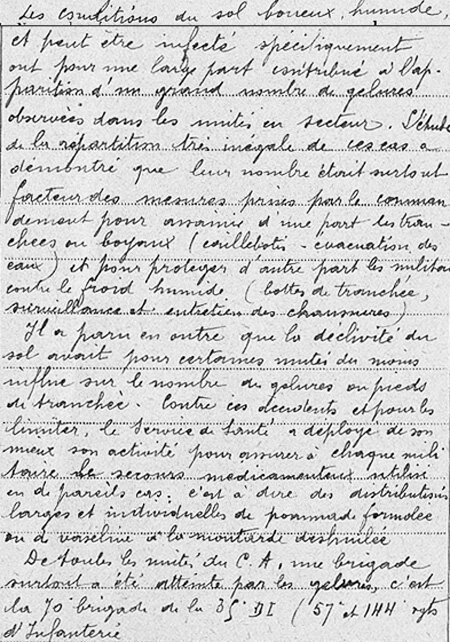 Les conditions du sol boueux, humide,
et peut être infecté spécifiquement
ont pour une large part contribué à l'ap-
parition d'un grand nombre de gelures
observées dans les unités en secteur. L'étude
de la répartition très inégale de ces cas a
démontré que leur nombre était surtout
facteur des mesures prises par le comman
dement pour assainir d'une part les tran-
chées ou boyaux (caillebotis - évacuation des
eaux) et pour protéger d'autre part les militai
contre le froid humide (bottes de tranchée,
surveillance et entretien des chaussures)
Il a paru en outre que la déclivité du
sol avait pour certaines unités du moins
influé sur le nombre des gelures ou pieds
de tranchée. Contre ces accidents et pour les
limiter, le Service de Santé a déployé de son
mieux son activité pour assurer à chaque mili
taire le secours médicamenteux utilisé
en de pareils cas: c'est à dire des distributions
larges et individuelles de pommade formolée
ou de vaseline à la moutarde deshuilée
De toutes les unités du C.A, une brigade
surtout a été atteinte par les gelures, c'est
la 70 brigade de la 35e DI (57e et 144 rgts
d'Infanterie